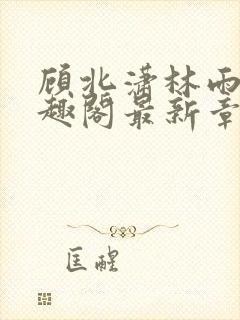 顾北潇林雨
趣阁最新章
匡醒